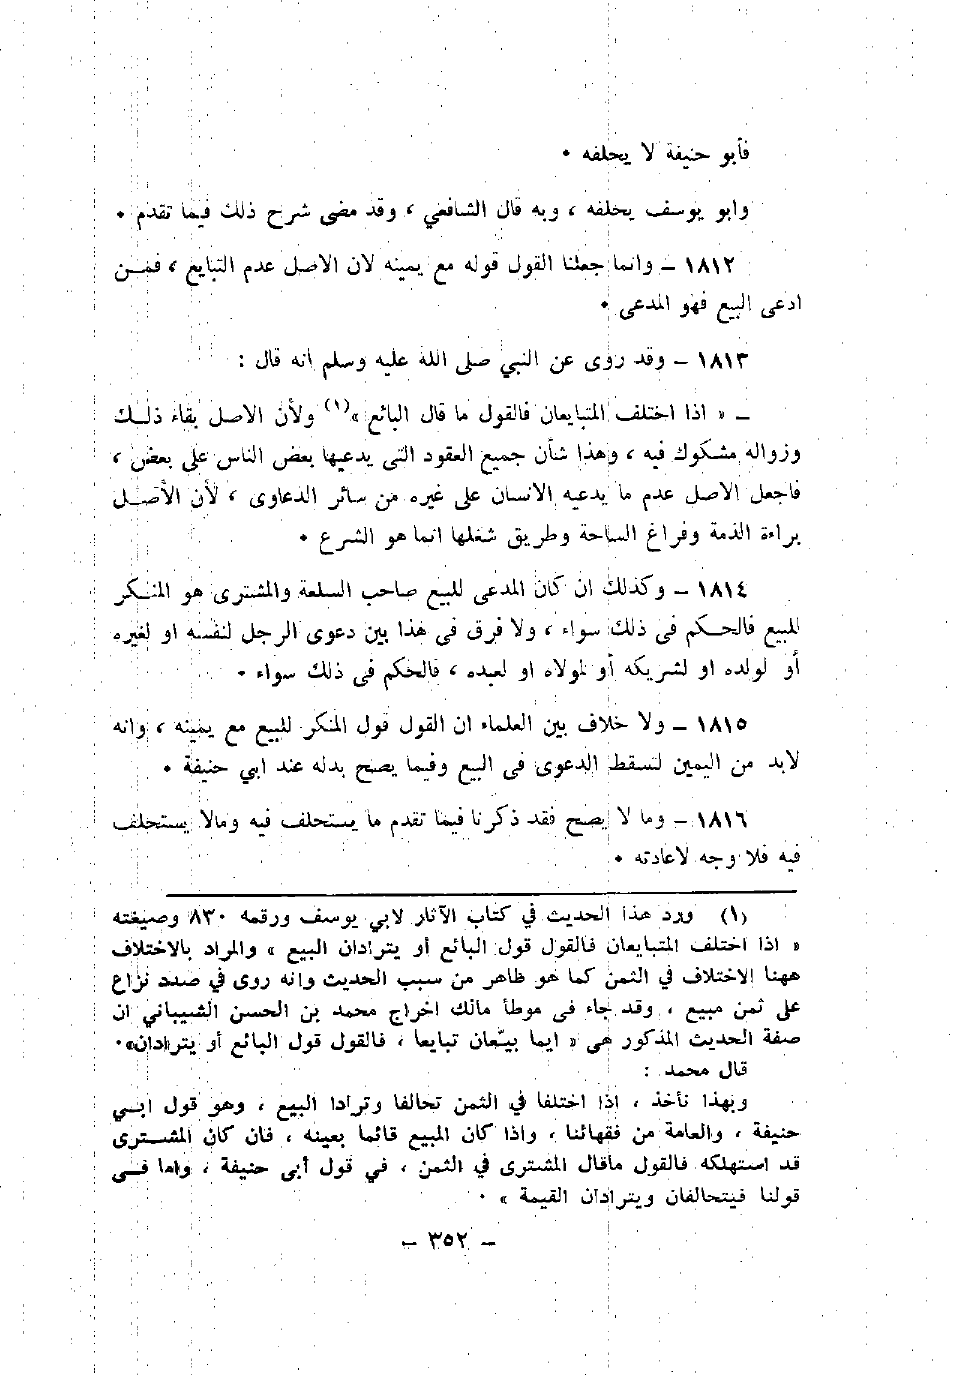 فأبو حنيفة لا يحلفه •
وابو يوسف يحلفه ، وبه قال الشافعي ، وقد مضى شرح ذلك فيما تقدم •
١٨١٢ – وانما جعلنا القول قوله مع يمينه لان الاصل عدم التبايع ، فمـن
ادعى البيع فهو المدعى •
١٨١٣ – وقد روى عن النبي صلى الله عليه وسلم انه قال :
– « اذا اختلف المتبايعان فالقول ما قال البائع »(١) ولأن الاصل بقاء ذلـك
وزواله مشكوك فيه ، وهذا شأن جميع العقود التى يدعيها بعض الناس على بعض ،
فاجعل الاصل عدم ما يدعيه الانسان على غيره من سائر الدعاوى ، لأن الأصـل
براءة الذمة وفراغ الساحة وطريق شغلها انما هو الشرع •
١٨١٤ – وكذلك ان كان المدعى للبيع صاحب السلعة والمشترى هو المنـكر
للبيع فالحـكم فى ذلك سواء ، ولا فرق فى هذا بين دعوى الرجل لنفسه او لغيره
أو لولده او لشريكه أو لمولاه او لعبده ، فالحكم فى ذلك سواء •
١٨١٥ – ولا خلاف بين العلماء ان القول قول المنكر للبيع مع يمينه ، وانه
لابد من اليمين لتسقط الدعوى فى البيع وفيما يصح بدله عند ابي حنيفة •
١٨١٦ – وما لا يصح فقد ذكرنا فيما تقدم ما يستحلف فيه ومالا يستحلف
فيه فلا وجه لاعادته •
(١) ورد هذا الحديث في كتاب الآثار لابي يوسف ورقمه ٨٣٠ وصيغته
« اذا اختلف المتبايعان فالقول قول البائع أو يترادان البيع » والمراد بالاختلاف
ههنا الاختلاف في الثمن كما هو ظاهر من سبب الحديث وانه روى في صدد نزاع
على ثمن مبيع ، وقد جاء فى موطأ مالك اخراج محمد بن الحسن الشيباني ان
صفة الحديث المذكور هى « ايما بيّعان تبايعا ، فالقول قول البائع أو يترادان»•
قال محمد :
وبهذا نأخذ ، اذا اختلفا في الثمن تحالفا وترادا البيع ، وهو قول ابـي
حنيفة ، والعامة من فقهائنا ، واذا كان المبيع قائما بعينه ، فان كان المشـترى
قد استهلكه فالقول ماقال المشترى في الثمن ، في قول أبى حنيفة ، واما فـى
قولنا فيتحالفان ويترادان القيمة » •
– ٣٥٢ –